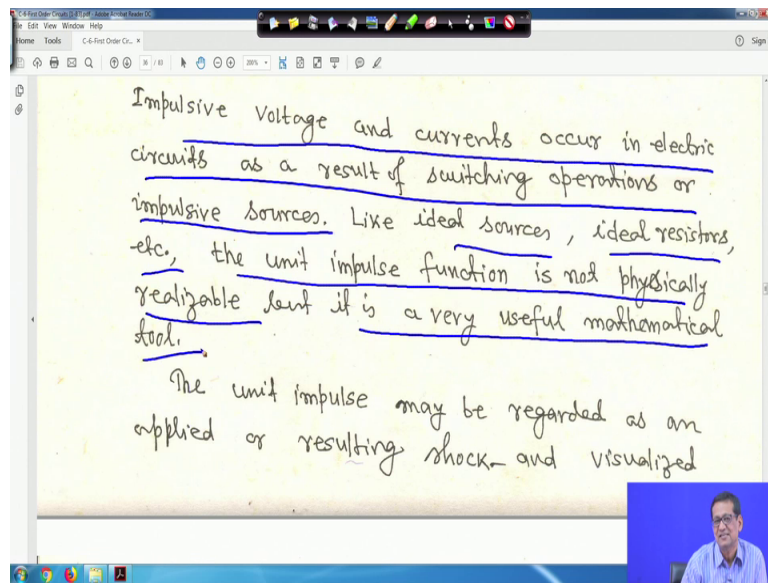 C-6-First Order Circuits [1-83].pdf - Adobe Acrobat Reader DC
File Edit View Window Help
Home Tools C-6-First Order Cir... ×
Sign
36 / 83 200%
Impulsive Voltage and currents occur in electric
circuits as a result of switching operations or
impulsive sources. Like ideal sources, ideal resistors,
etc., the unit impulse function is not physically
realizable but it is a very useful mathematical
tool.
The unit impulse may be regarded as an
applied or resulting shock and visualized